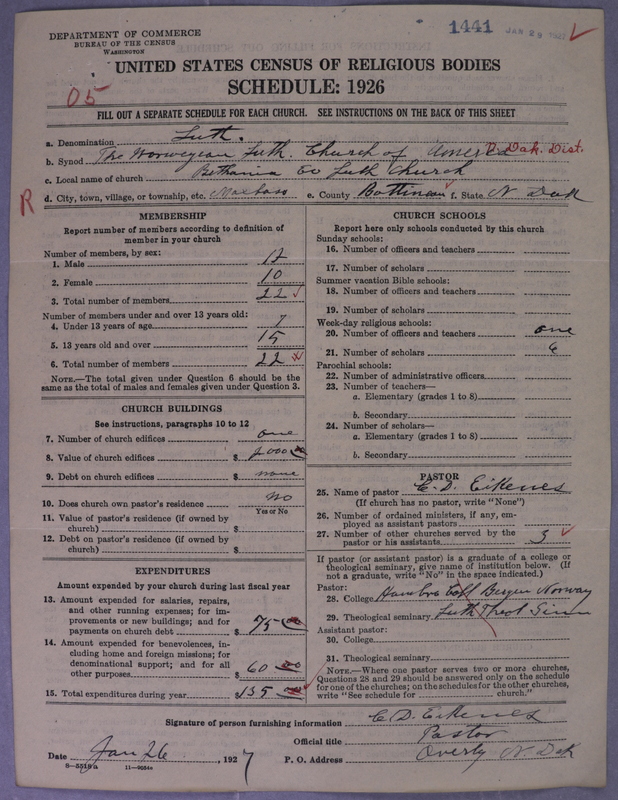 DEPARTMENT OF COMMERCE
BUREAU OF THE CENSUS
WASHINGTON
1441 JAN 29 1927
UNITED STATES CENSUS OF RELIGIOUS BODIES
05
SCHEDULE: 1926
FILL OUT A SEPARATE SCHEDULE FOR EACH CHURCH. SEE INSTRUCTIONS ON THE BACK OF THIS SHEET
a. Denomination Luth.
b. Synod The Norwegian Luth. Church of America N. Dak. Dist.
c. Local name of church Bethania Ev Luth Church
R
d. City, town, village, or township, etc. Maxbass e. County Bottineau f. State N Dak
MEMBERSHIP
Report number of members according to definition of member in your church
Number of members, by sex:
1. Male 12
2. Female 10
3. Total number of members 22
Number of members under and over 13 years old:
4. Under 13 years of age 7
5. 13 years old and over 15
6. Total number of members 22
NOTE.—The total given under Question 6 should be the same as the total of males and females given under Question 3.
CHURCH BUILDINGS
See instructions, paragraphs 10 to 12
7. Number of church edifices one
8. Value of church edifices $ 2000
9. Debt on church edifices $ none
10. Does church own pastor's residence no
Yes or No
11. Value of pastor's residence (if owned by church) $
12. Debt on pastor's residence (if owned by church) $
EXPENDITURES
Amount expended by your church during last fiscal year
13. Amount expended for salaries, repairs, and other running expenses; for improvements or new buildings; and for payments on church debt $ 75 00
14. Amount expended for benevolences, including home and foreign missions; for denominational support; and for all other purposes $ 60 00
15. Total expenditures during year $ 135 00
CHURCH SCHOOLS
Report here only schools conducted by this church
Sunday schools:
16. Number of officers and teachers
17. Number of scholars
Summer vacation Bible schools:
18. Number of officers and teachers
19. Number of scholars
Week-day religious schools:
20. Number of officers and teachers one
21. Number of scholars 6
Parochial schools:
22. Number of administrative officers
23. Number of teachers—
a. Elementary (grades 1 to 8)
b. Secondary
24. Number of scholars—
a. Elementary (grades 1 to 8)
b. Secondary
PASTOR
25. Name of pastor E. D. Eikenes
(If church has no pastor, write "None")
26. Number of ordained ministers, if any, employed as assistant pastors
27. Number of other churches served by the pastor or his assistants 3
If pastor (or assistant pastor) is a graduate of a college or theological seminary, give name of institution below. (If not a graduate, write "No" in the space indicated.)
Pastor:
28. College Bergen Norway
29. Theological seminary Luth Theol Sem
Assistant pastor:
30. College
31. Theological seminary
NOTE.—Where one pastor serves two or more churches, Questions 28 and 29 should be answered only on the schedule for one of the churches; on the schedules for the other churches, write "See schedule for church."
Signature of person furnishing information E. D. Eikenes
Official title Pastor
Date Jan 26, 1927 P. O. Address Overly N. Dak
8—5518a 11—9054a